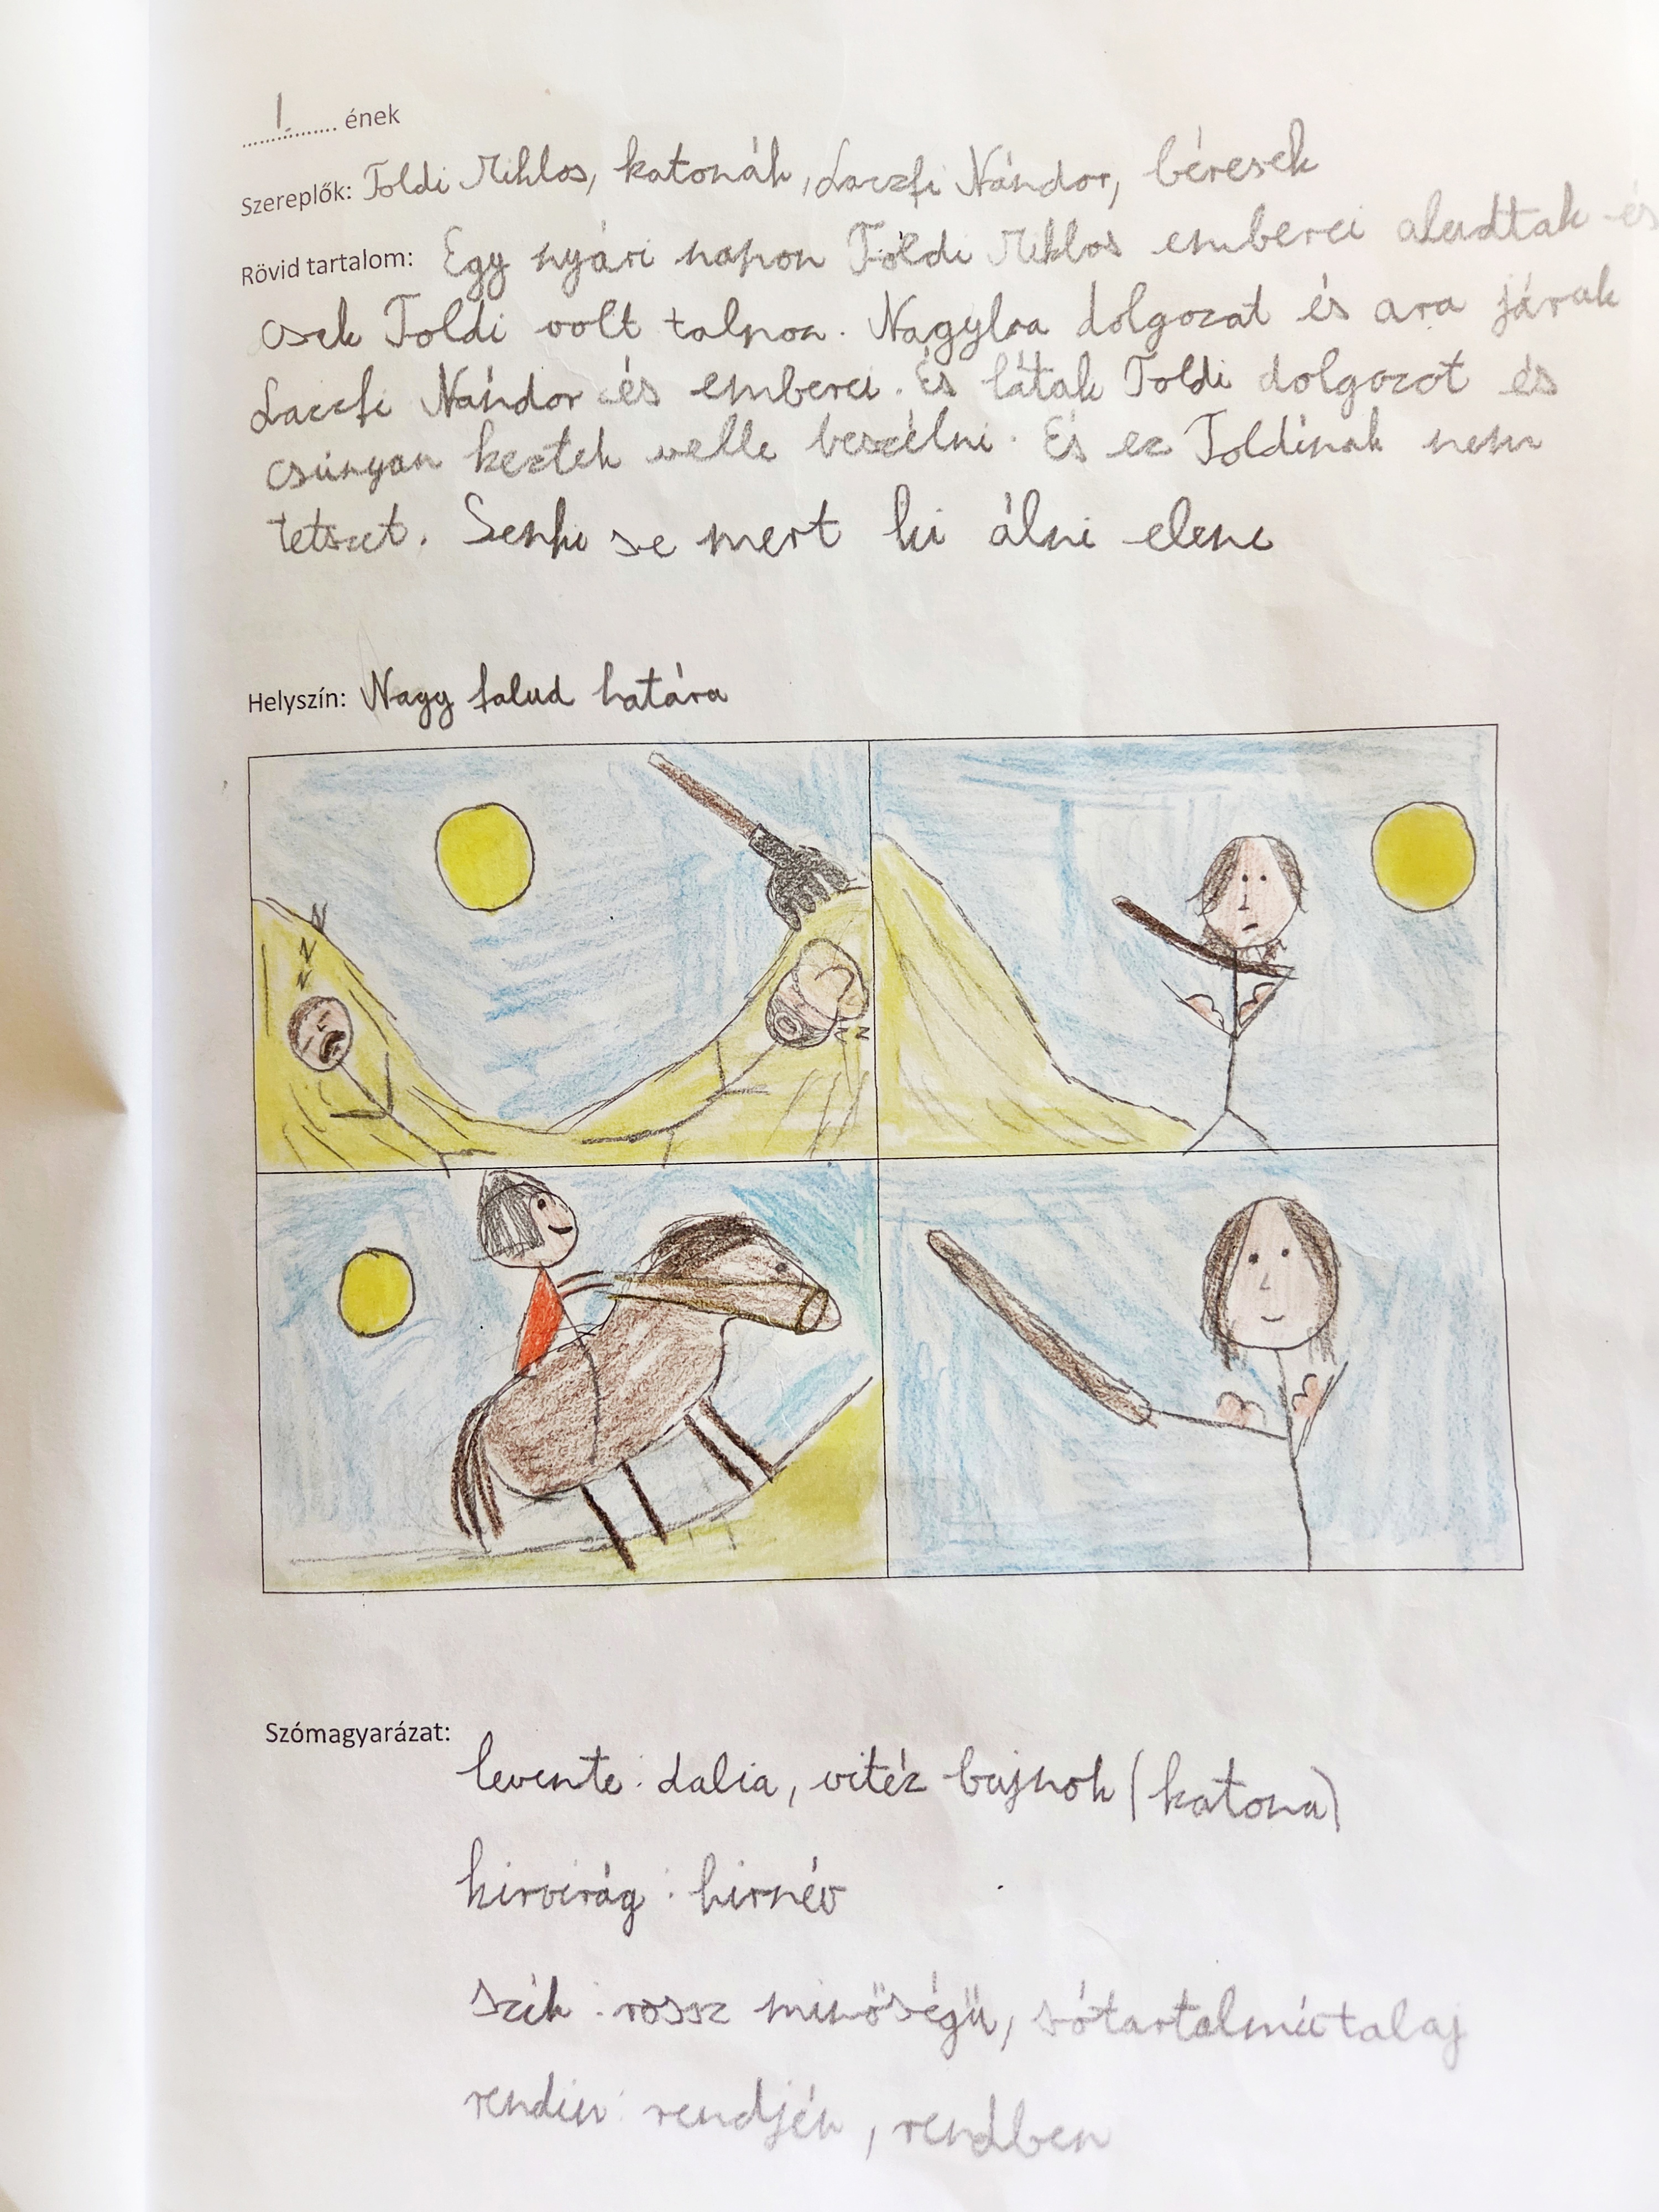 1. ének
Szereplők: Toldi Miklos, katonák, Laczfi Nándor, béresek
Rövid tartalom: Egy nyári napon Toldi Miklos emberei aludtak és
csek Toldi volt talpon. Nagyba dolgozat és ara járak
Laczfi Nándor és emberei. És látak Toldi dolgozot és
csúnyan keztek velle beszélni. És ez Toldinak nem
tetszet. Senki se mert ki álni elene
Helyszín: Nagy falud határa
N
z
z
N
N
Szómagyarázat:
levente: dalia, vitéz bajnok (katona)
hirvirág: hirnév
szik: rossz minőségű, sótartalmú talaj
rendin: rendjén, rendben